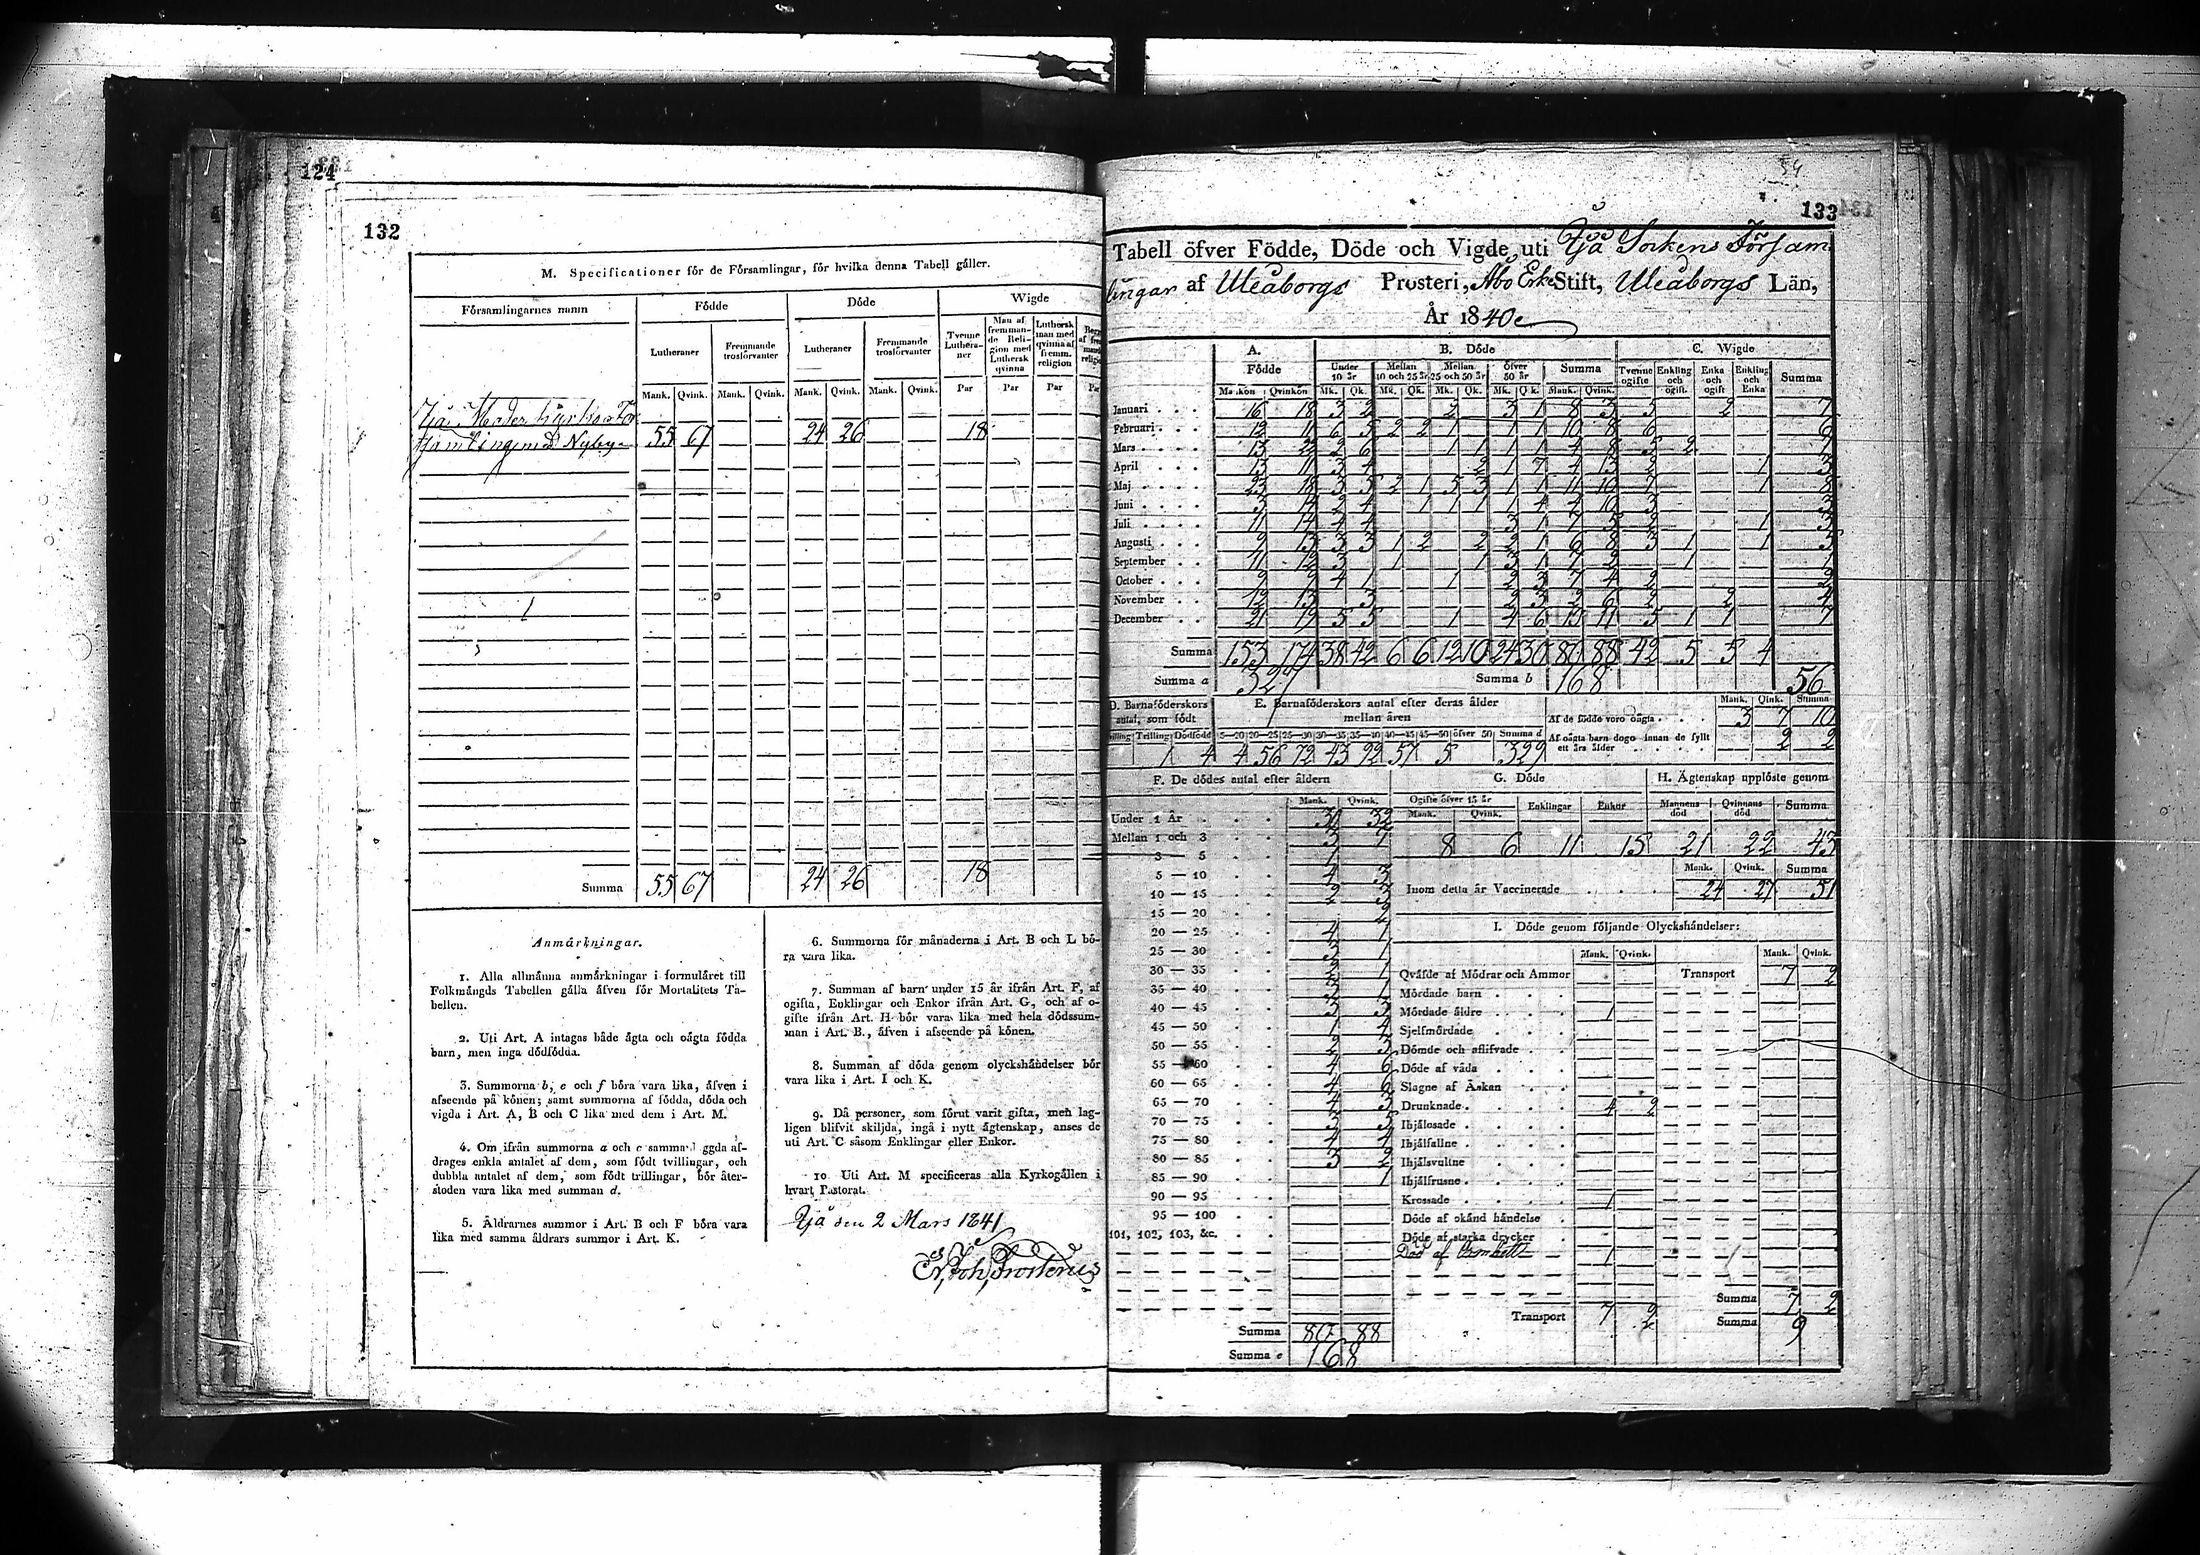 124
132
M. Specificationer för de Församlingar, för hvilka denna Tabell gäller.
Församlingarnes namn
Födde
Döde
Wigde
Lutheraner
Fremmande trosförvanter
Lutheraner
Fremmande trosförvanter
Tvenne Lutheraner
Man af fremmande Religion med Luthersk qvinna
Luthersk man med qvinna af fremm. religion
Mank. Qvink. Mank. Qvink. Mank. Qvink. Mank. Qvink. Par Par Par
55 67 24 26 18
Summa 55 67 24 26 18
Anmärkningar.
1. Alla allmänna anmärkningar i formuläret till
Folkmängds Tabellen gälla äfven för Mortalitets Ta-
bellen.
2. Uti Art. A intagas både ägta och oägta födda
barn, men inga dödfödda.
3. Summorna b, e och f böra vara lika, äfven i
afseende på könen; samt summorna af födda, döda och
vigda i Art. A, B och C lika med dem i Art. M.
4. Om ifrån summorna a och c sammanlaggda af-
drages enkla antalet af dem, som födt tvillingar, och
dubbla antalet af dem, som födt trillingar, bör åter-
stoden vara lika med summan d.
5. Åldrarnes summor i Art. B och F böra vara
lika med samma åldrars summor i Art. K.
6. Summorna för månaderna i Art. B och L bö-
ra vara lika.
7. Summan af barn under 15 år ifrån Art. F, af
ogifta, Enklingar och Enkor ifrån Art. G, och af o-
gifte ifrån Art. H bör vara lika med hela dödssum-
man i Art. B., äfven i afseende på könen.
8. Summan af döda genom olyckshändelser bör
vara lika i Art. I och K.
9. Då personer, som förut varit gifta, men lag-
ligen blifvit skiljda, ingå i nytt ägtenskap, anses de
uti Art. C såsom Enklingar eller Enkor.
10. Uti Art. M specificeras alla Kyrkogällen i
hvart Pastorat.
Ijå den 2 Mars 1841
133
Tabell öfver Födde, Döde och Vigde, uti Ijå Sockens Försam
lingar af Uleåborgs Prosteri, Åbo Erke Stift, Uleåborgs Län,
År 1840
A. Födde
B. Döde
C. Wigde
Under 10 år
Mellan 10 och 25 år
Mellan 25 och 50 år
öfver 50 år
Summa
Tvenne ogifte
Enkling och ogift
Enka och ogift
Enkling och Enka
Summa
Mankön Qvinkön Mk. Qk. Mk. Qk. Mk. Qk. Mk. Qk. Mank. Qvink.
Januari 16 18 3 2 2 3 1 8 3 5 2 7
Februari 12 11 6 5 2 2 1 1 1 10 8 6 6
Mars 13 22 2 6 1 1 1 1 4 8 5 2 7
April 13 11 3 4 2 1 7 4 13 2 1 3
Maj 23 18 3 5 2 1 5 3 1 1 11 10 7 1 8
Juni 3 14 2 4 1 1 1 1 4 4 10 3 3
Juli 11 14 4 4 3 1 7 5 2 1 3
Augusti 9 13 3 3 1 2 2 2 1 6 8 3 1 1 5
September
October 9 9 4 1 1 2 3 7 4 2 2
November 12 13 3 2 3 2 6 2 2 4
December 21 19 5 5 1 4 6 11 5 1 1 7
Summa 153 174 38 42 6 6 12 10 24 30 80 88 42 5 5 4
Summa a 327 Summa b 168 56
D. Barnaföderskors antal, som födt
E. Barnaföderskors antal efter deras ålder
mellan åren
Trilling Dödfödd 15—20 20—25 25—30 30—35 35—40 40—45 45—50 öfver 50 Summa d
1 4 4 56 72 43 92 57 5 329
Mank. Qink. Summa
Af de födde voro oägta 3 7 10
Af oägta barn dogo innan de fyllt
ett års ålder 2 2
F. De dödes antal efter åldern
Mank. Qvink.
Under 1 År 32
Mellan 1 och 3 3 7
3 — 5 1
5 — 10 4 3
10 — 15 2 3
15 — 20 2
20 — 25 4 1
25 — 30 3 1
30 — 35 1
35 — 40 1
40 — 45 3 3
45 — 50 1 4
50 — 55 2 3
55 — 60 4 6
60 — 65 4 6
65 — 70 4 3
70 — 75 3 5
75 — 80 4 4
80 — 85 3 2
85 — 90 1
90 — 95
95 — 100
101, 102, 103, &c.
Summa 80 88
Summa e 168
G. Döde
Ogifte öfver 15 år
Mank. Qvink.
Enklingar
Enkor
8 6 11 15
H. Ägtenskap upplöste genom
Mannens död
Qvinnans död
Summa
21 22 43
Mank. Qvink. Summa
Inom detta år Vaccinerade 24 27 51
I. Döde genom följande Olyckshändelser:
Mank. Qvink. Mank. Qvink.
Qväfde af Mödrar och Ammor Transport 7 2
Mördade barn
Mördade äldre 1
Sjelfmördade
Dömde och aflifvade
Döde af våda
Slagne af Åskan
Drunknade 4 2
Ihjälosade
Ihjälfallne
Ihjälsvultne
Ihjälfrusne
Krossade 1
Döde af okänd händelse
Döde af starka drycker
Död af 1
Summa 7 2
Transport 7 2 Summa 9